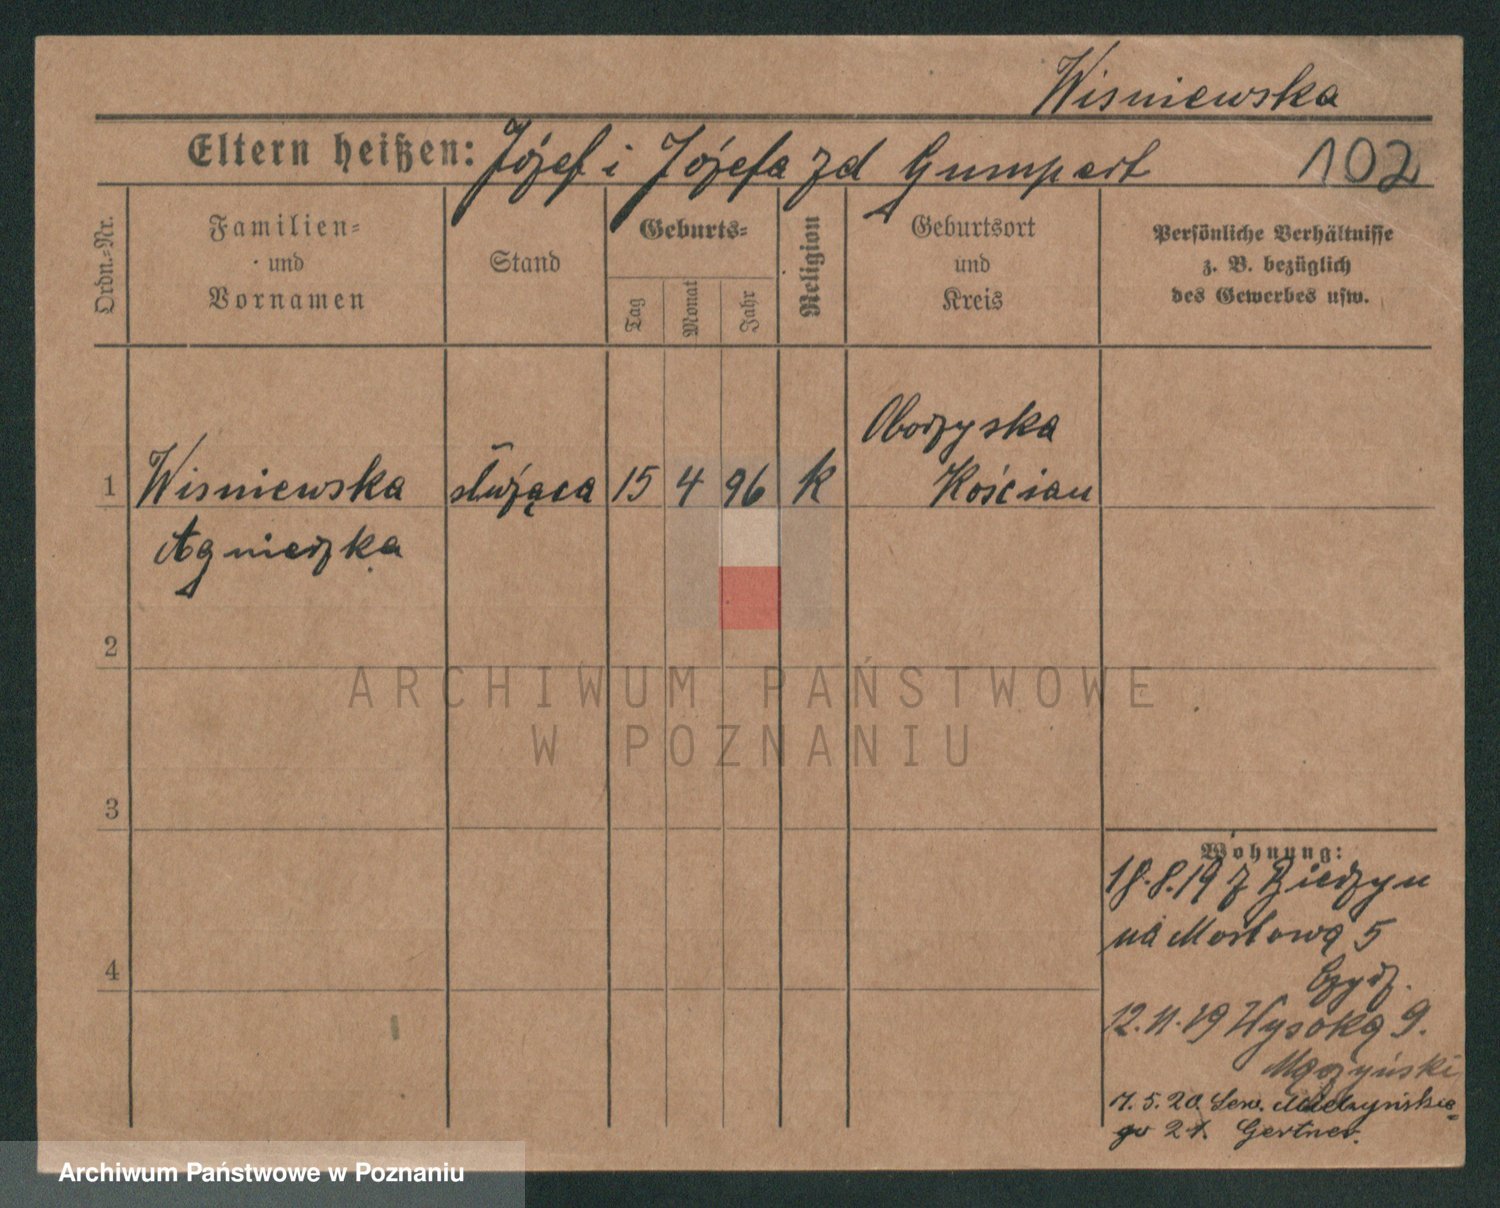 Wisniewska
Eltern heißen: Józef i Józefa zd Gumpert 102
Ordn.-Nr.
Familien-
und
Vornamen
Stand
Geburts-
Tag
Monat
Jahr
Religion
Geburtsort
und
Kreis
Persönliche Verhältnisse
z. B. bezüglich
des Gewerbes usw.
Oborzyska
1 Wisniewska służąca 15 4 96 k Kościan
Agnieszka
2
ARCHIWUM PAŃSTWOWE
W POZNANIU
3
Wohnung:
18.8.19 z
na Mostową 5
4
12.11.19 Wysoka 9.
Mączyński
7.5.20. Sew. Mielżyńskie-
go Gertner.
Archiwum Państwowe w Poznaniu